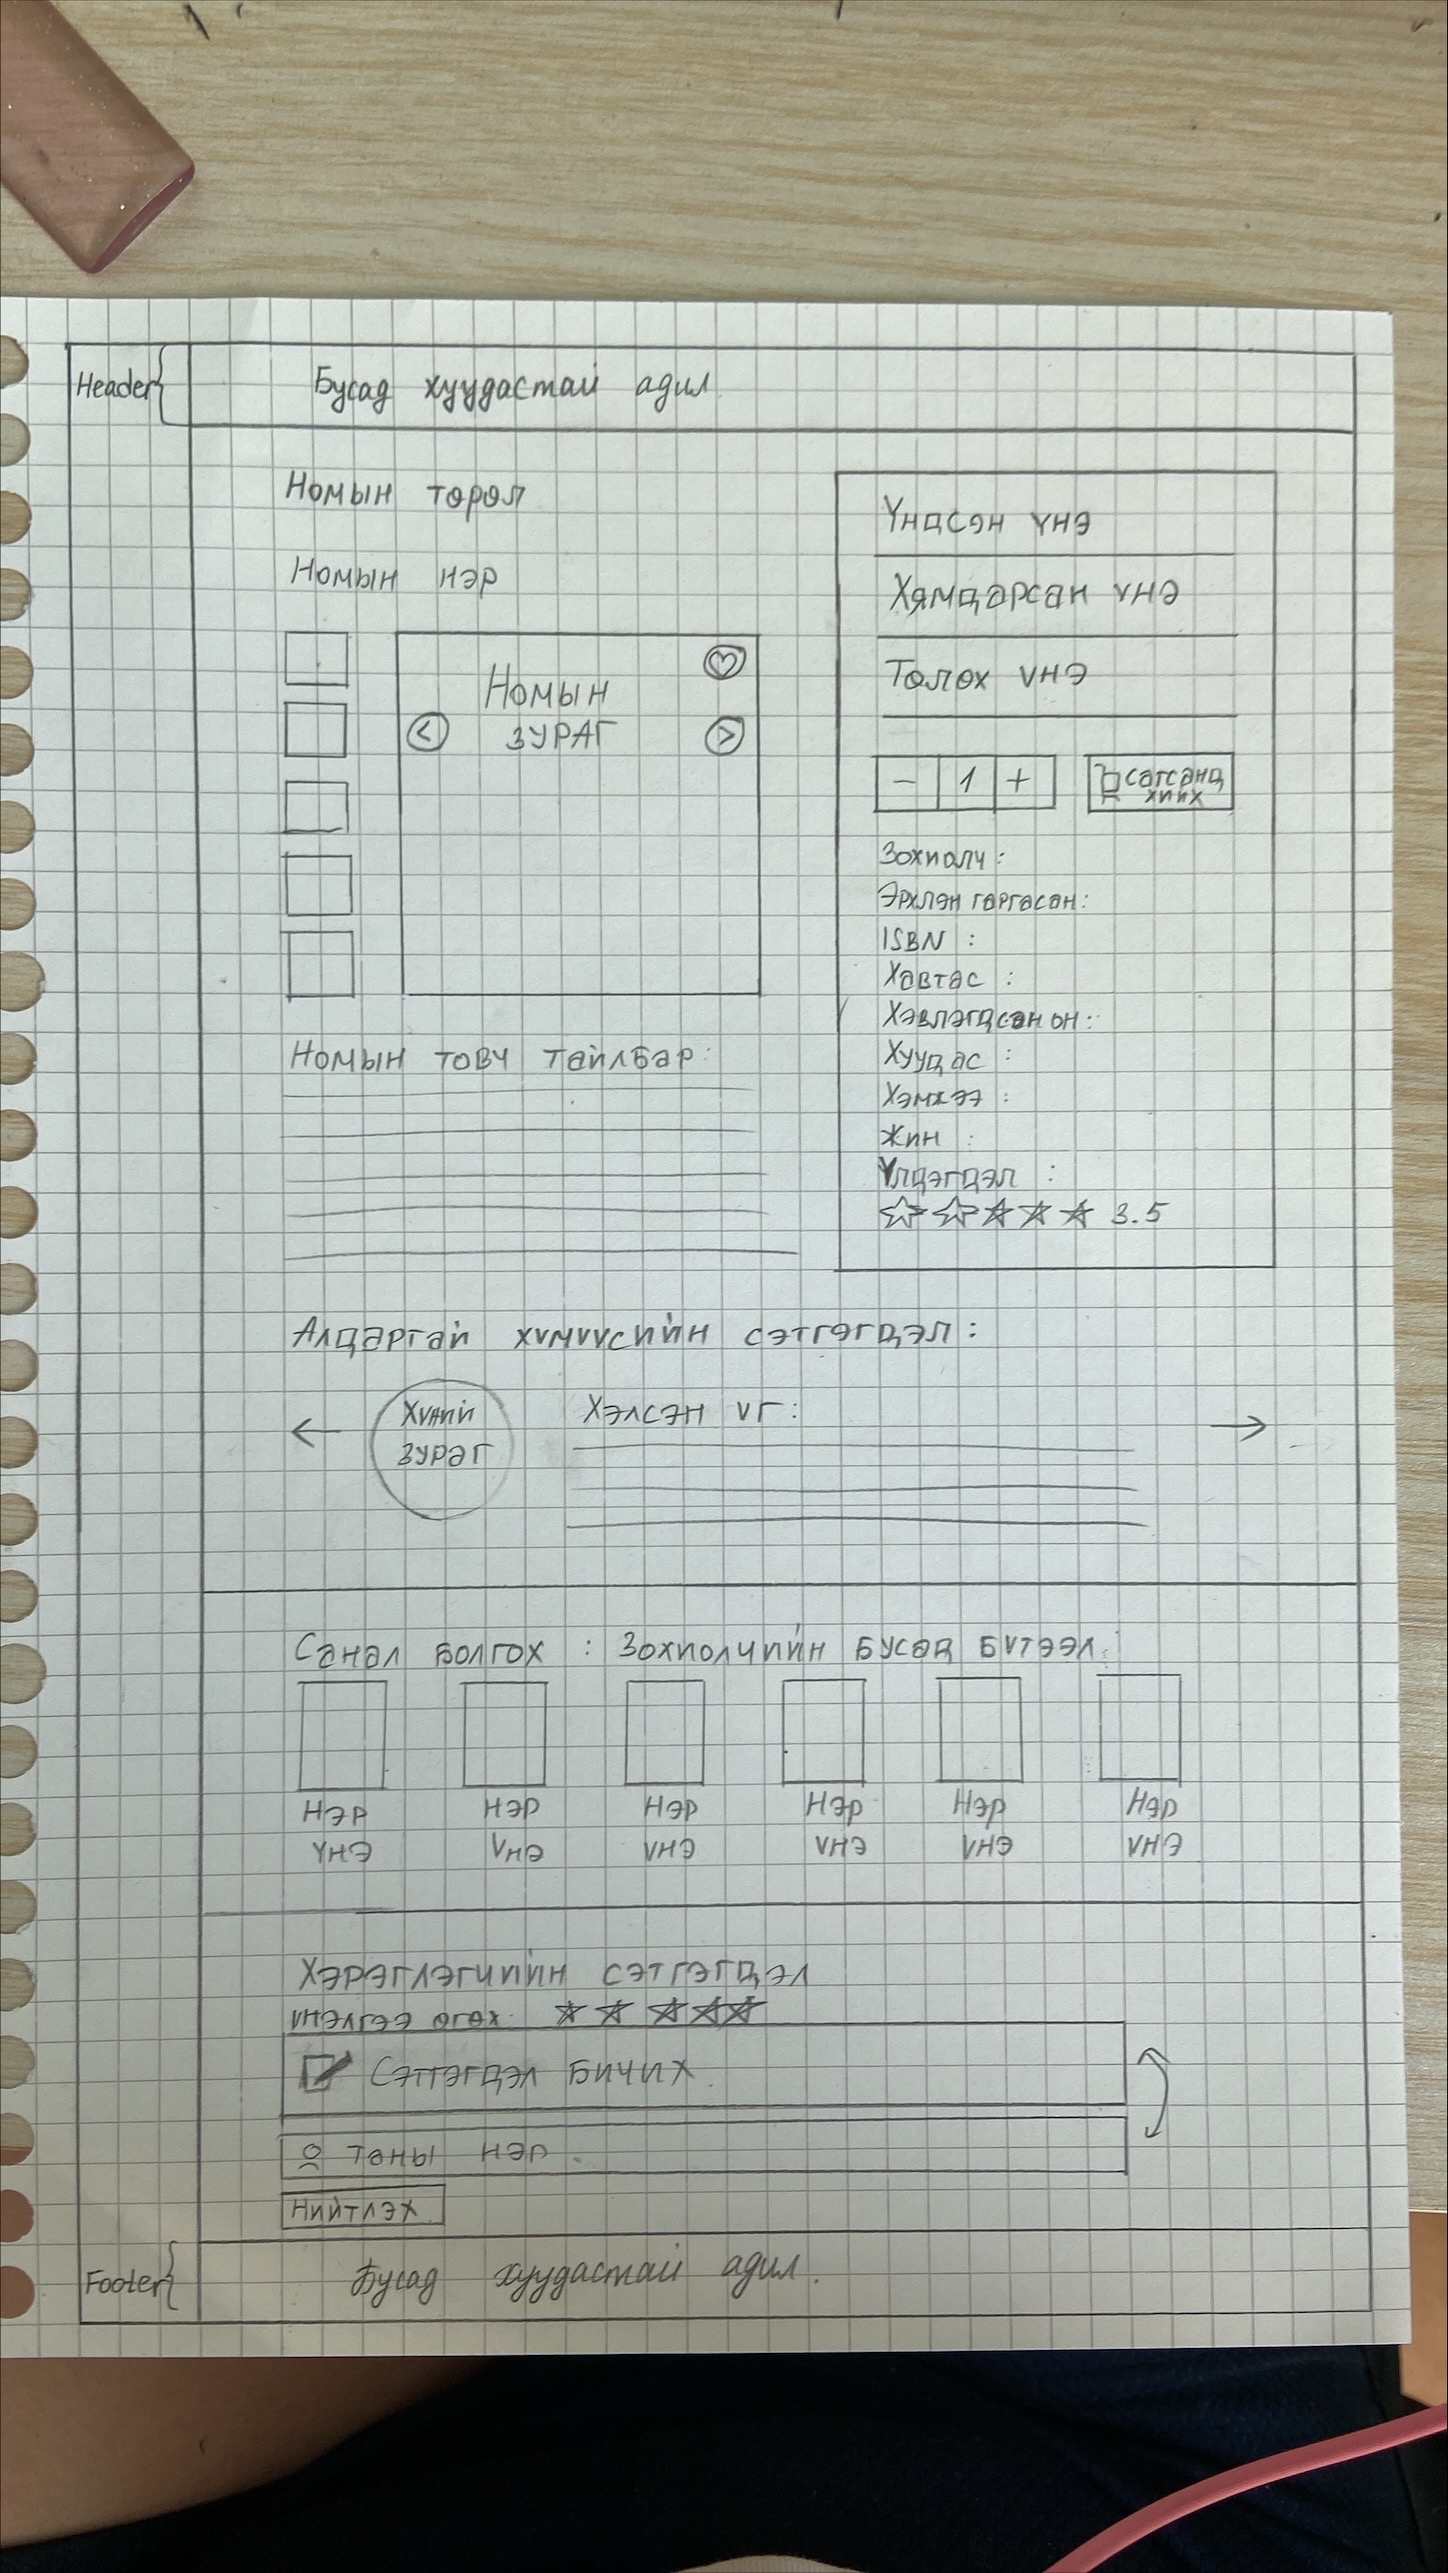 Header
Бусад хуудастай адил
Номын төрөл
Номын нэр
Номын
ЗУРАГ
Үндсэн үнэ
Хямдарсан үнэ
Төлөх үнэ
- 1 +
сагсанд
хийх
Зохиолч :
Эрхлэн гаргасан :
ISBN :
Хавтас :
Хэвлэгдсэн он :
Хуудас :
Хэмжээ :
Жин :
Үлдэгдэл :
3.5
Номын товч тайлбар :
Алдартай хүмүүсийн сэтгэгдэл :
Хүний
зураг
Хэлсэн үг :
Санал болгох : Зохиолчийн бусад бүтээл :
Нэр Нэр Нэр Нэр Нэр Нэр
Үнэ Үнэ Үнэ Үнэ Үнэ Үнэ
Хэрэглэгчийн сэтгэгдэл
Үнэлгээ өгөх
Сэтгэгдэл бичих.
Таны нэр.
Нийтлэх
Footer
Бусад хуудастай адил.